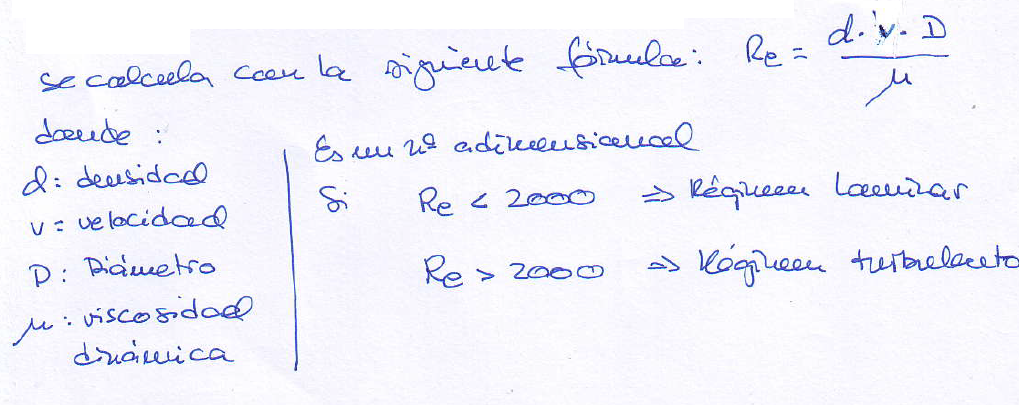 se calcula con la siguiente fórmula: Re = d. v. D / μ
donde :
d: densidad
v = velocidad
D: Diámetro
μ: viscosidad
dinámica
Es un nº adimensional
Si Re < 2000 => Régimen Laminar
Re > 2000 => Régimen turbulento